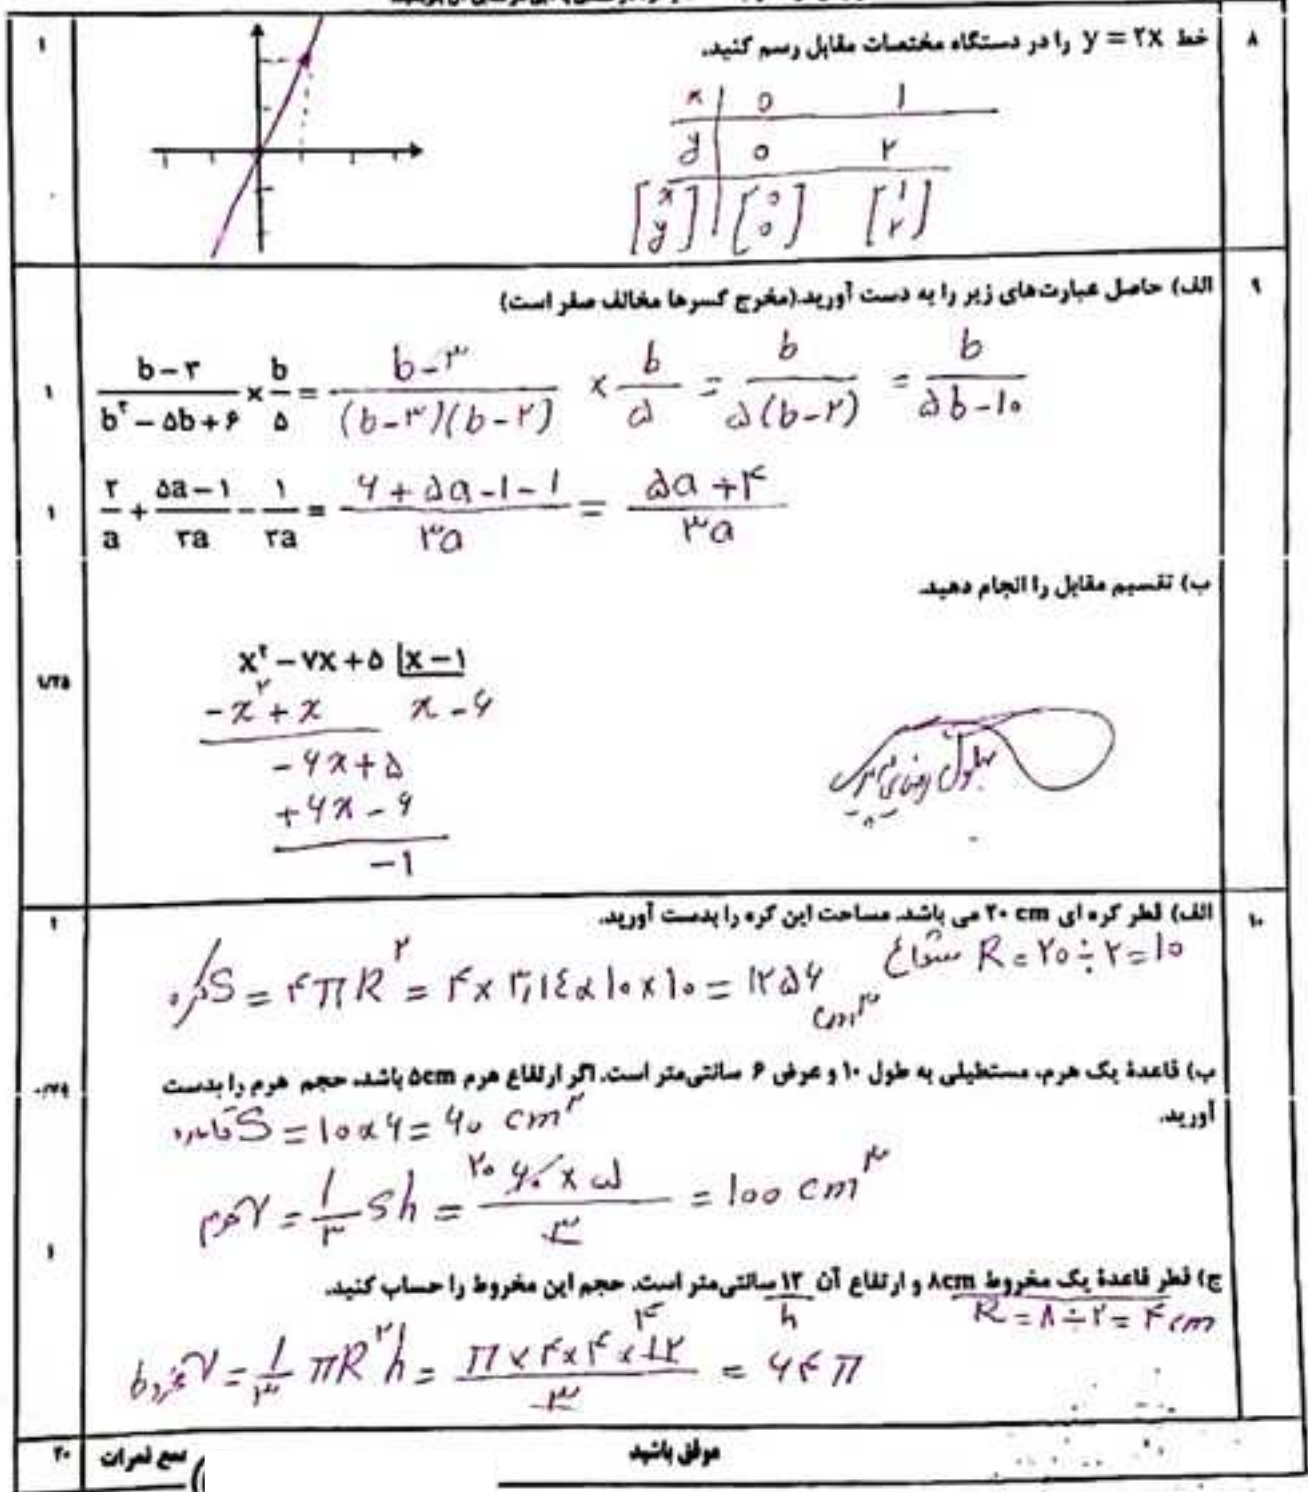 ۸ خط y = ۲x را در دستگاه مختصات مقابل رسم کنید. ۱
x | ۰ ۱
y | ۰ ۲
[x y] | [۰ ۰] [۱ ۲]
۹ الف) حاصل عبارت‌های زیر را به دست آورید.(مخرج کسرها مخالف صفر است)
(b-۳)/(b²-۵b+۶) × b/۵ = (b-۳)/((b-۳)(b-۲)) × b/۵ = b/(۵(b-۲)) = b/(۵b-۱۰) ۱
۲/a + (۵a-۱)/۳a - ۱/۳a = (۶+۵a-۱-۱)/۳a = (۵a+۴)/۳a ۱
ب) تقسیم مقابل را انجام دهید.
x² - ۷x + ۵ | x - ۱ ۱/۲۵
-x² + x x - ۶
-۶x + ۵
+۶x - ۶
-۱
۱۰ الف) قطر کره ای ۲۰ cm می باشد. مساحت این کره را بدست آورید. ۱
شعاع R = ۲۰ ÷ ۲ = ۱۰
کره S = ۴πR² = ۴ × ۳,۱٤ × ۱۰ × ۱۰ = ۱۲۵۶ cm²
ب) قاعدهٔ یک هرم، مستطیلی به طول ۱۰ و عرض ۶ سانتی‌متر است. اگر ارتفاع هرم ۵cm باشد، حجم هرم را بدست
آورید.
قاعده S = ۱۰ × ۶ = ۶۰ cm²
هرم V = ۱/۳ Sh = (۲۰ ۶۰ × ۵)/۳ = ۱۰۰ cm³
ج) قطر قاعدهٔ یک مخروط ۸cm و ارتفاع آن ۱۲ سانتی‌متر است. حجم این مخروط را حساب کنید. ۱
h R = ۸ ÷ ۲ = ۴ cm
مخروط V = ۱/۳ πR²h = (π × ۴ × ۴ × ۱۲ ۴)/۳ = ۶۴π
موفق باشید
جمع نمرات ۲۰